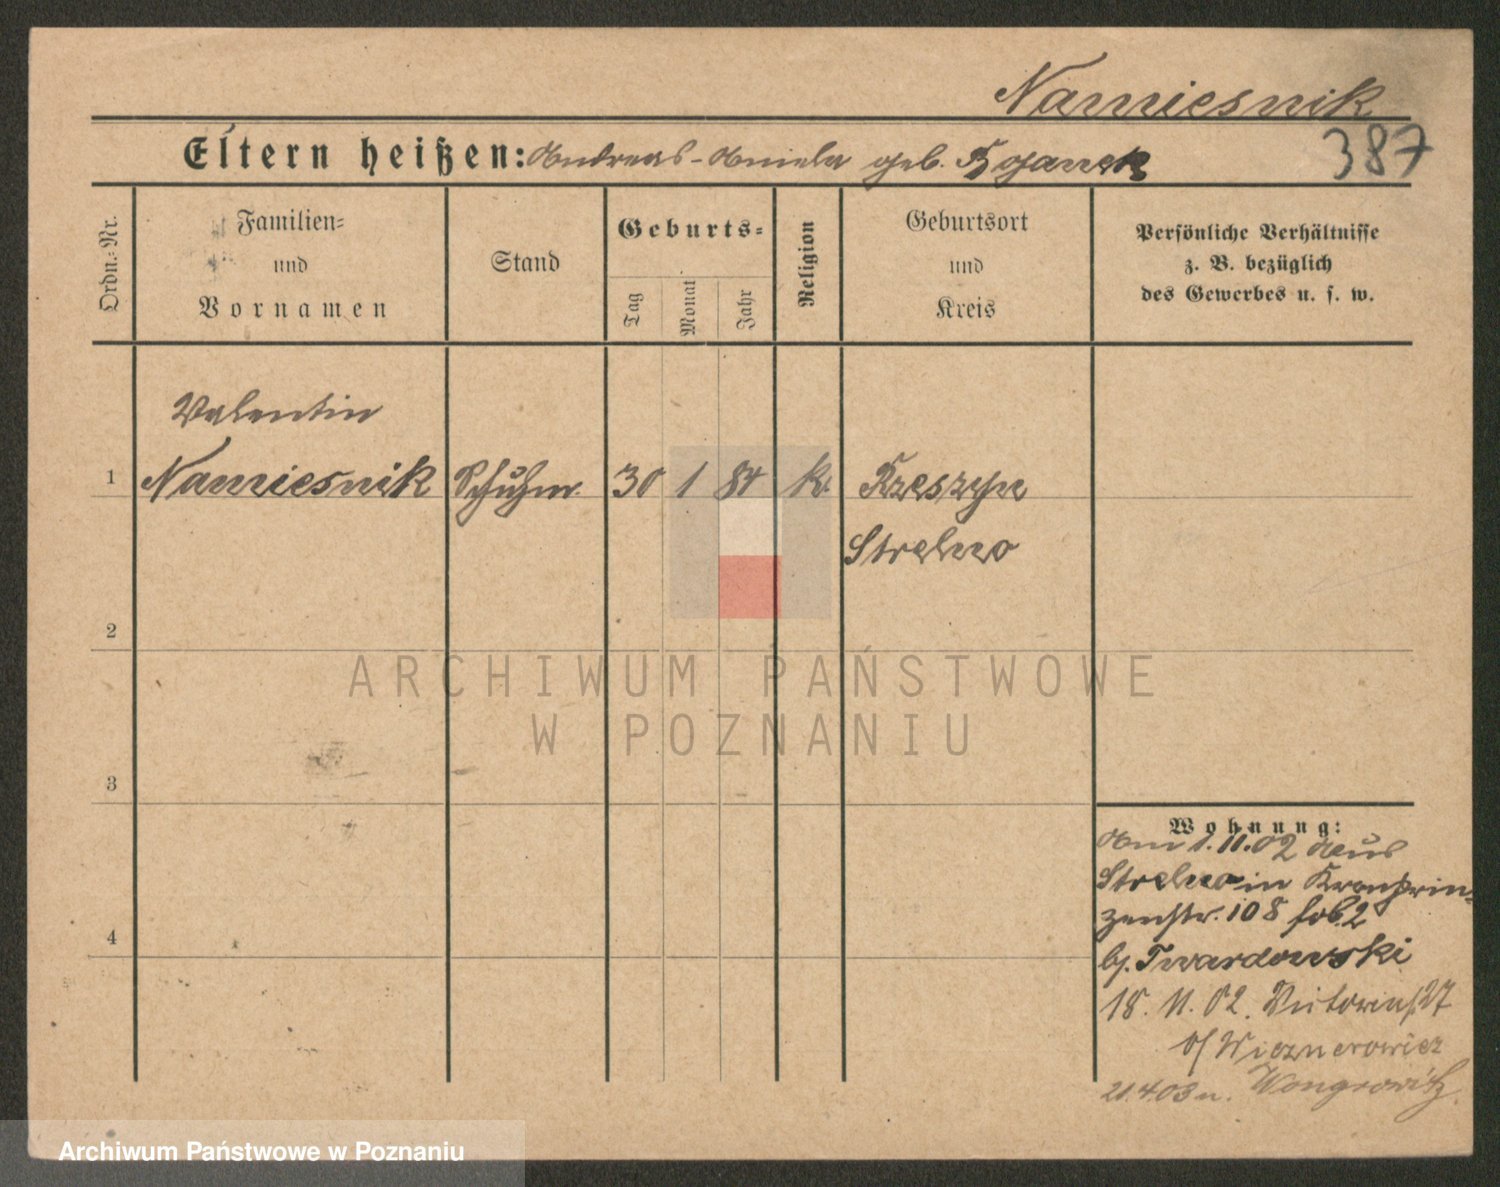 Namiesnik
387
Eltern heißen: Andreas - Aniela geb.
Ordn.-Nr.
Familien-
und
Vornamen
Stand
Geburts-
Tag
Monat
Jahr
Religion
Geburtsort
und
Kreis
Persönliche Verhältnisse
z. B. bezüglich
des Gewerbes u. s. w.
Valentin
1 Namiesnik Schuhm. 30 1 84 k. Rzeszyn
Strelno
2
3
4
Wohnung:
Am 1.11.02 aus
Strelno in Kronprin-
zenstr. 108
bj. Twardowski
18. 11. 02. Victoriast 27
b/ Wieznerowicz
21.4.03 n. Wongrowitz.
ARCHIWUM PAŃSTWOWE
W POZNANIU
Archiwum Państwowe w Poznaniu